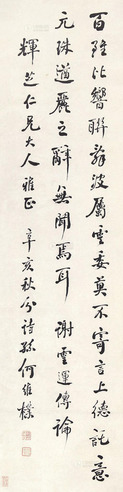 百雉比響聯辭波屬雲委莫不寄言上德託意
元珠遒麗之辭無聞焉耳　謝靈運傳論
輝芝仁兄大人雅正　辛亥秋分詩孫何維樸